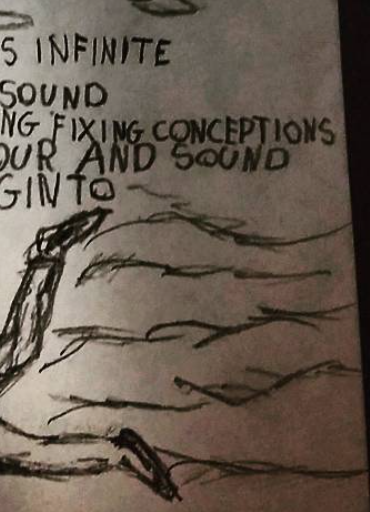 S INFINITE
SOUND
NG FIXING CONCEPTIONS
OUR AND SOUND
GIN TO